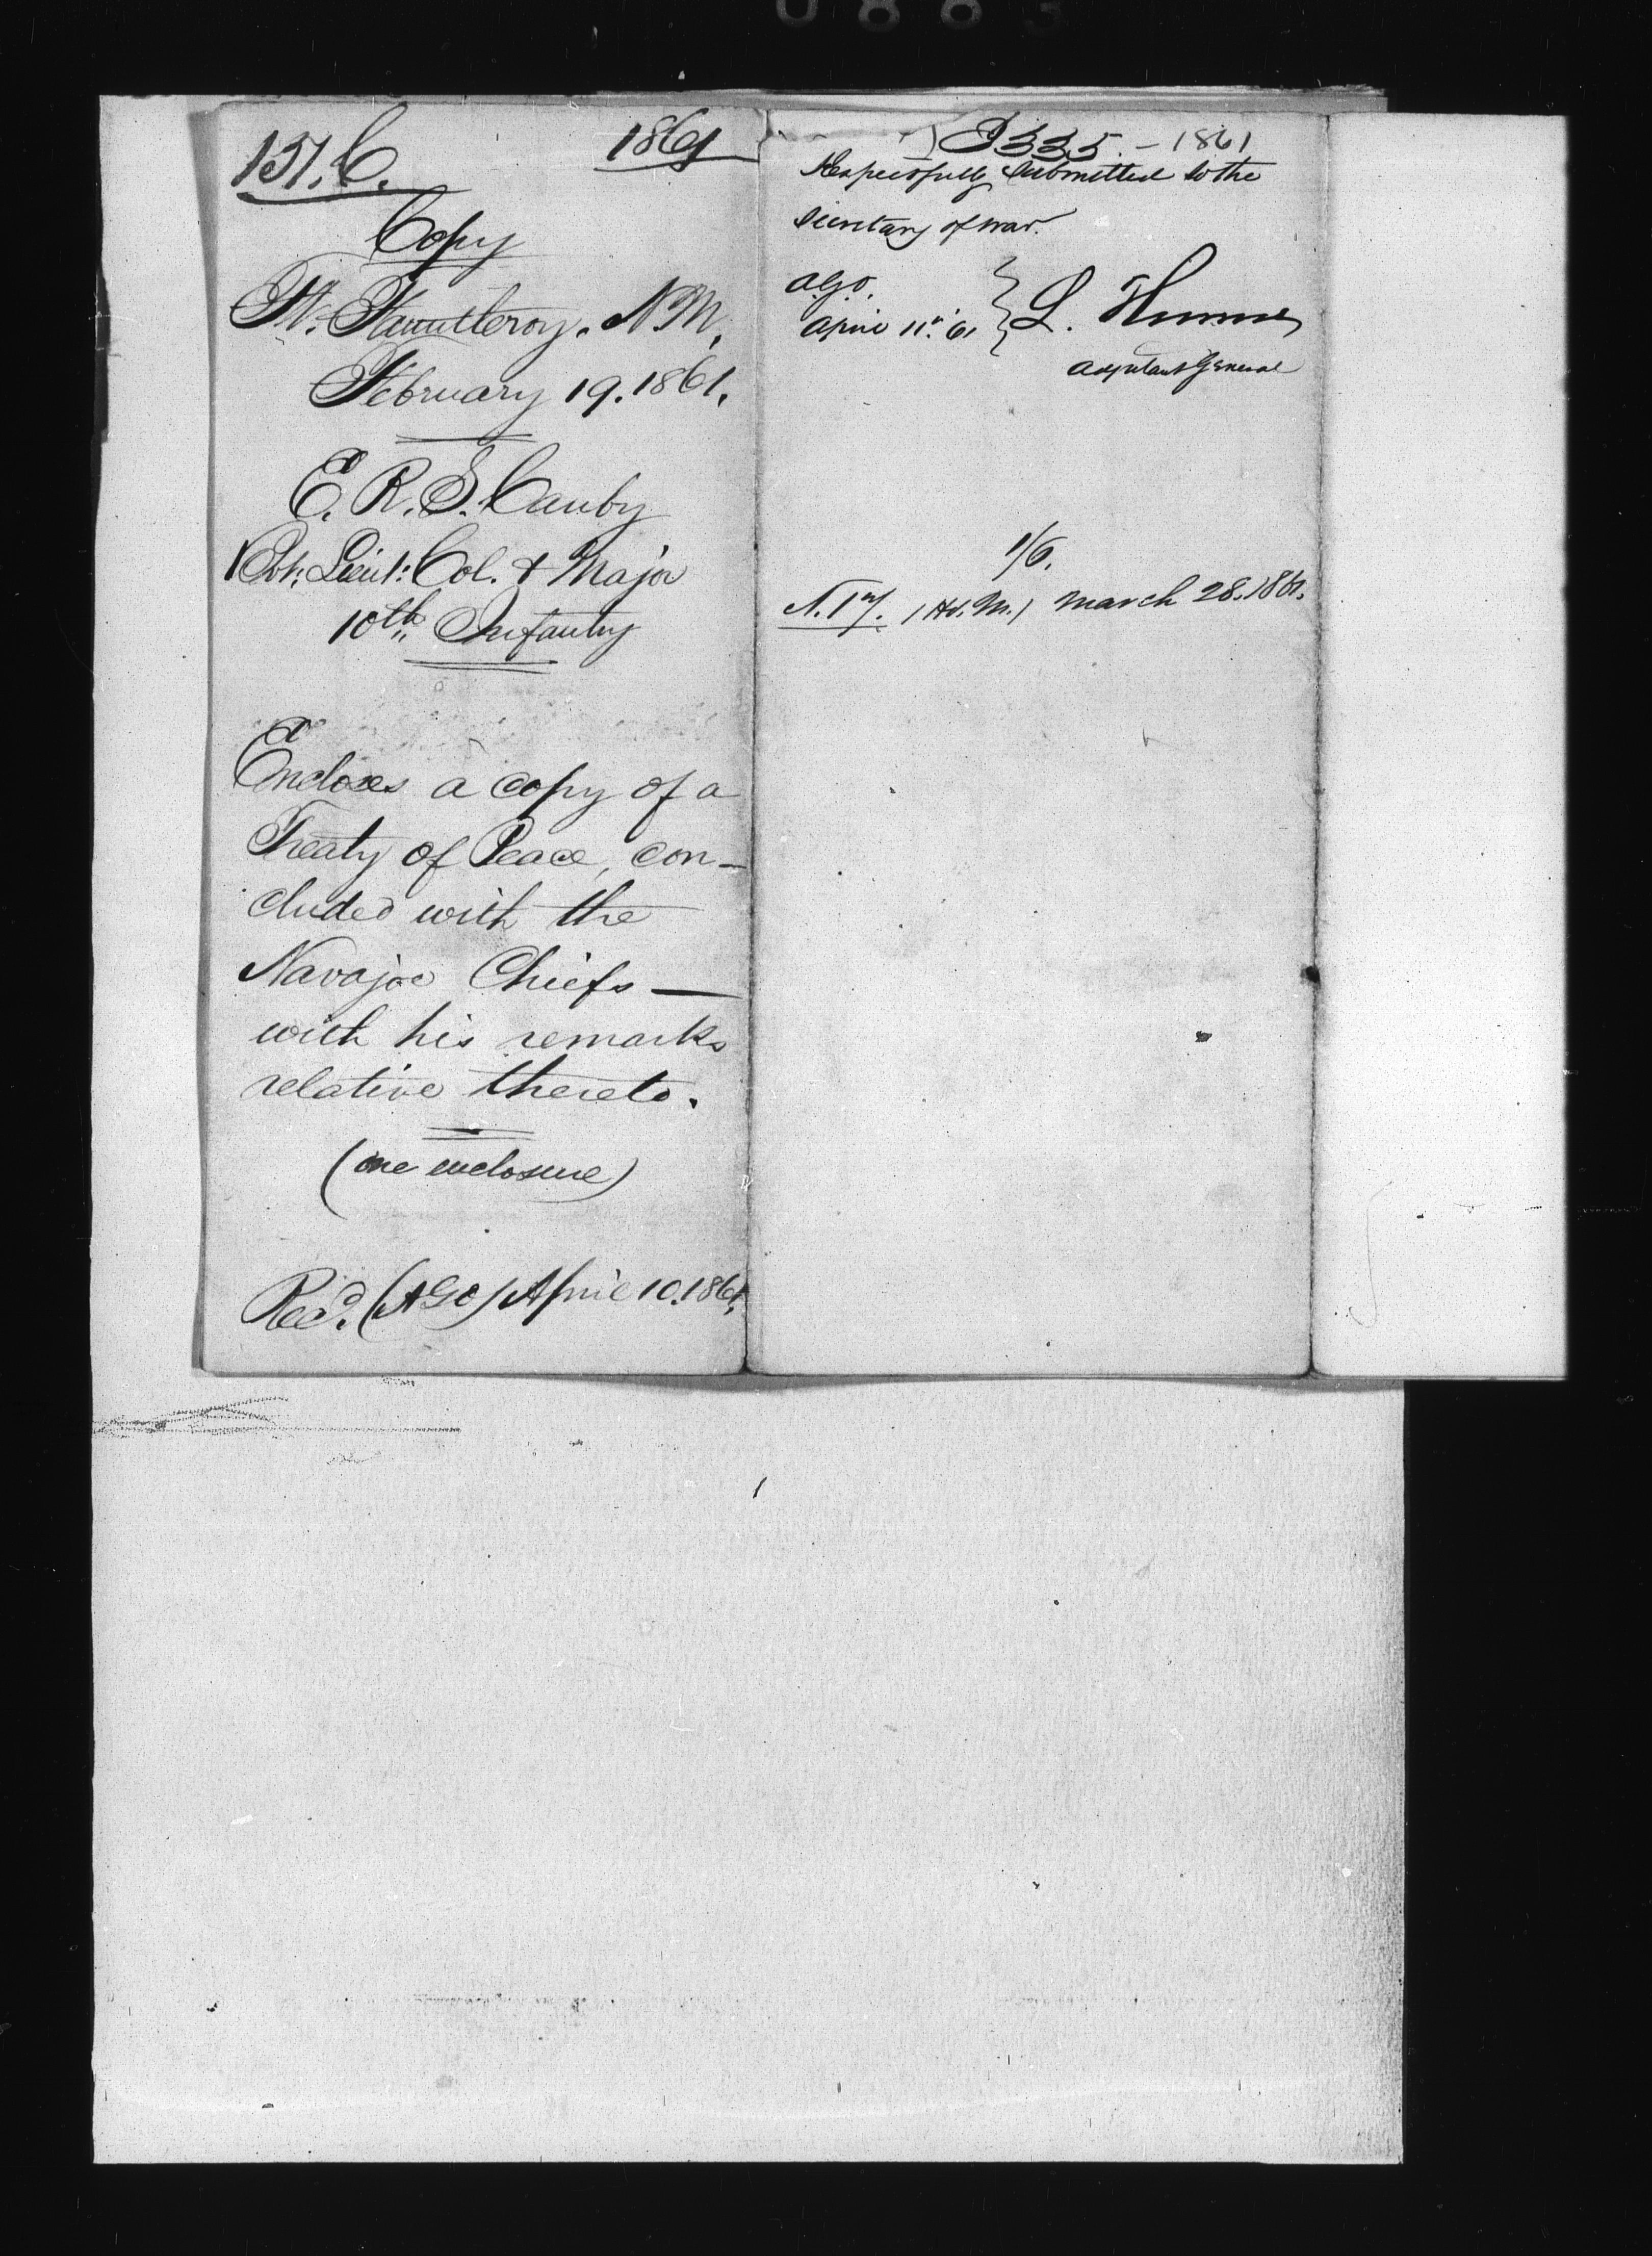 157. C. 1861
Copy
Ft. Fauntleroy. N.M.
February 19. 1861.
E. R. S. Canby
Bvt. Lieut: Col. & Major
10th Infantry
Encloses a copy of a
Treaty of Peace, con-
cluded with the
Navajoe Chiefs —
with his remarks
relative thereto.
(one enclosure)
Recd. (AGO) April 10. 1861.
335 - 1861
Respectfully submitted to the
Secretary of War.
A.G.O.
April 11th '61
L. Thomas
Adjutant General
1/6.
(Hd. Qrs.) March 28. 1861.